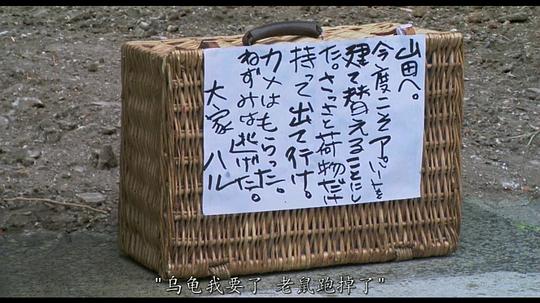 山田へ。
今度こそアパートを
建て替えることにし
た。さっさと荷物だけ
持って出て行け。
カメはもらった。
ねずみは逃げた。
大家 ハル
"乌龟我要了 老鼠跑掉了"